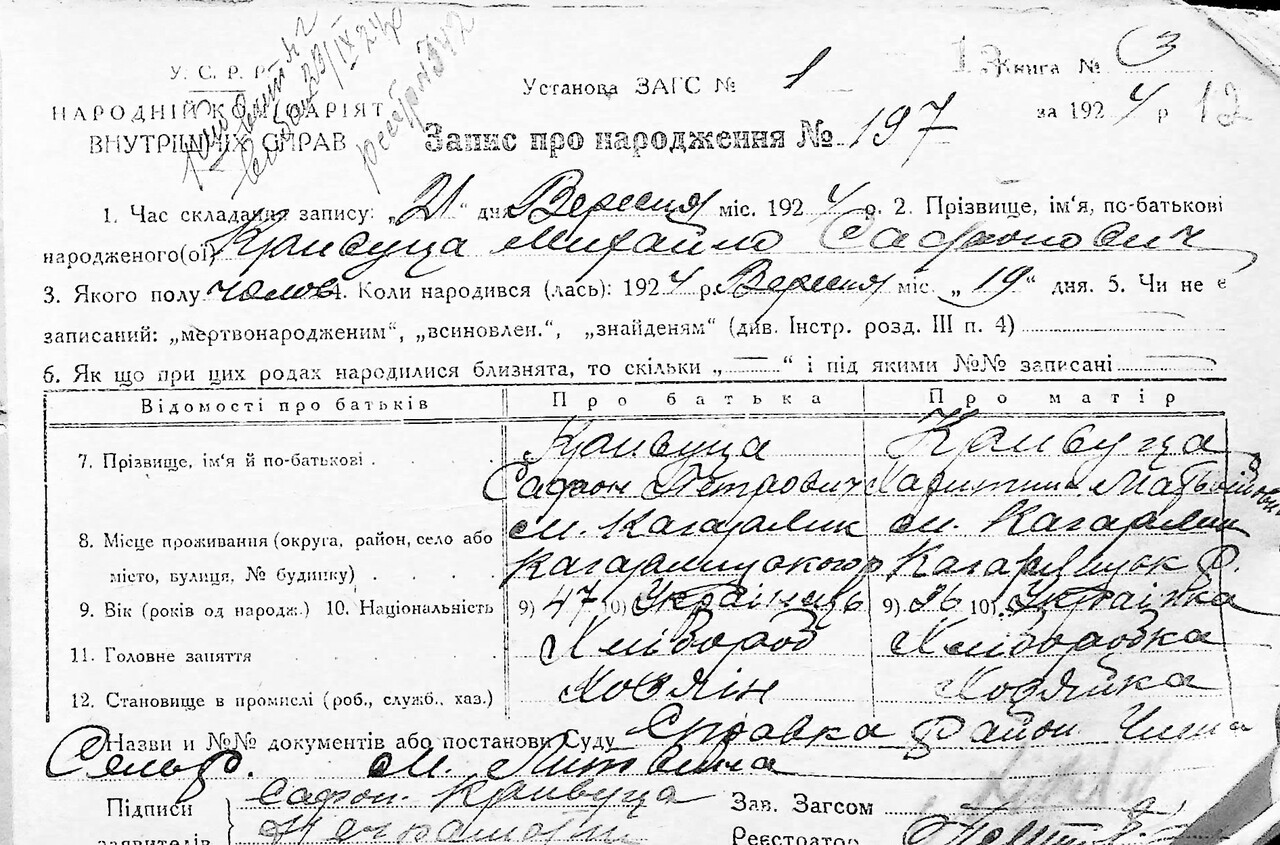 У. С. Р. Р.
НАРОДНІЙ КОМІСАРІЯТ
ВНУТРІШНІХ СПРАВ
23/IX 24 р
реєстр № 342
Установа ЗАГС № 1
13 Книга № 3
за 1924 р 12
Запис про народження № 197
1. Час складання запису: „21“ дня Вересня міс. 1924 р. 2. Прізвище, ім'я, по-батькові
народженого(ої) Кривуца Михайло Сафонович
3. Якого полу чолов 4. Коли народився (лась): 1924 р. Вересня міс. „19“ дня. 5. Чи не є
записаний: „мертвонародженим“, „всиновлен.“, „знайденям“ (див. Інстр. розд. III п. 4)
6. Як що при цих родах народилися близнята, то скільки „—“ і під якими №№ записані
Відомості про батьків Про батька Про матір
7. Прізвище, ім'я й по-батькові Кривуца Кривуца
Сафон Петрович
8. Місце проживання (округа, район, село або м. Кагарлик м. Кагарлик
місто, вулиця, № будинку) Кагарлицького р Кагарлицьк р.
9. Вік (років од народж.) 10. Національність 9) 47 10) Українець 9) 36 10) Українка
11. Головне заняття Хлібороб Хліборобка
12. Становище в промислі (роб., служб., хаз.) Хозяїн Хозяйка
Назви и №№ документів або постанови Суду Справка Район
м. Литвина
Підписи Сафон Кривуца Зав. Загсом
заявителів Неграмотн Реєстратор